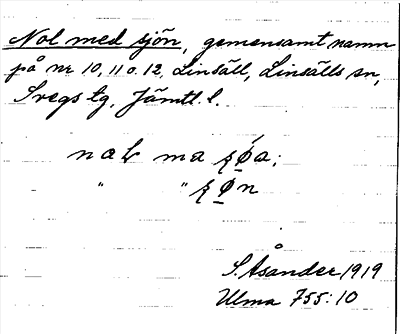 Nol med sjön, gemensamt namn
på nr 10, 11 o. 12, Linsäll, Linsälls sn,
Svegs tg, Jämtl. l.
ma
" "
S. Åsander 1919
Ulma 755:10